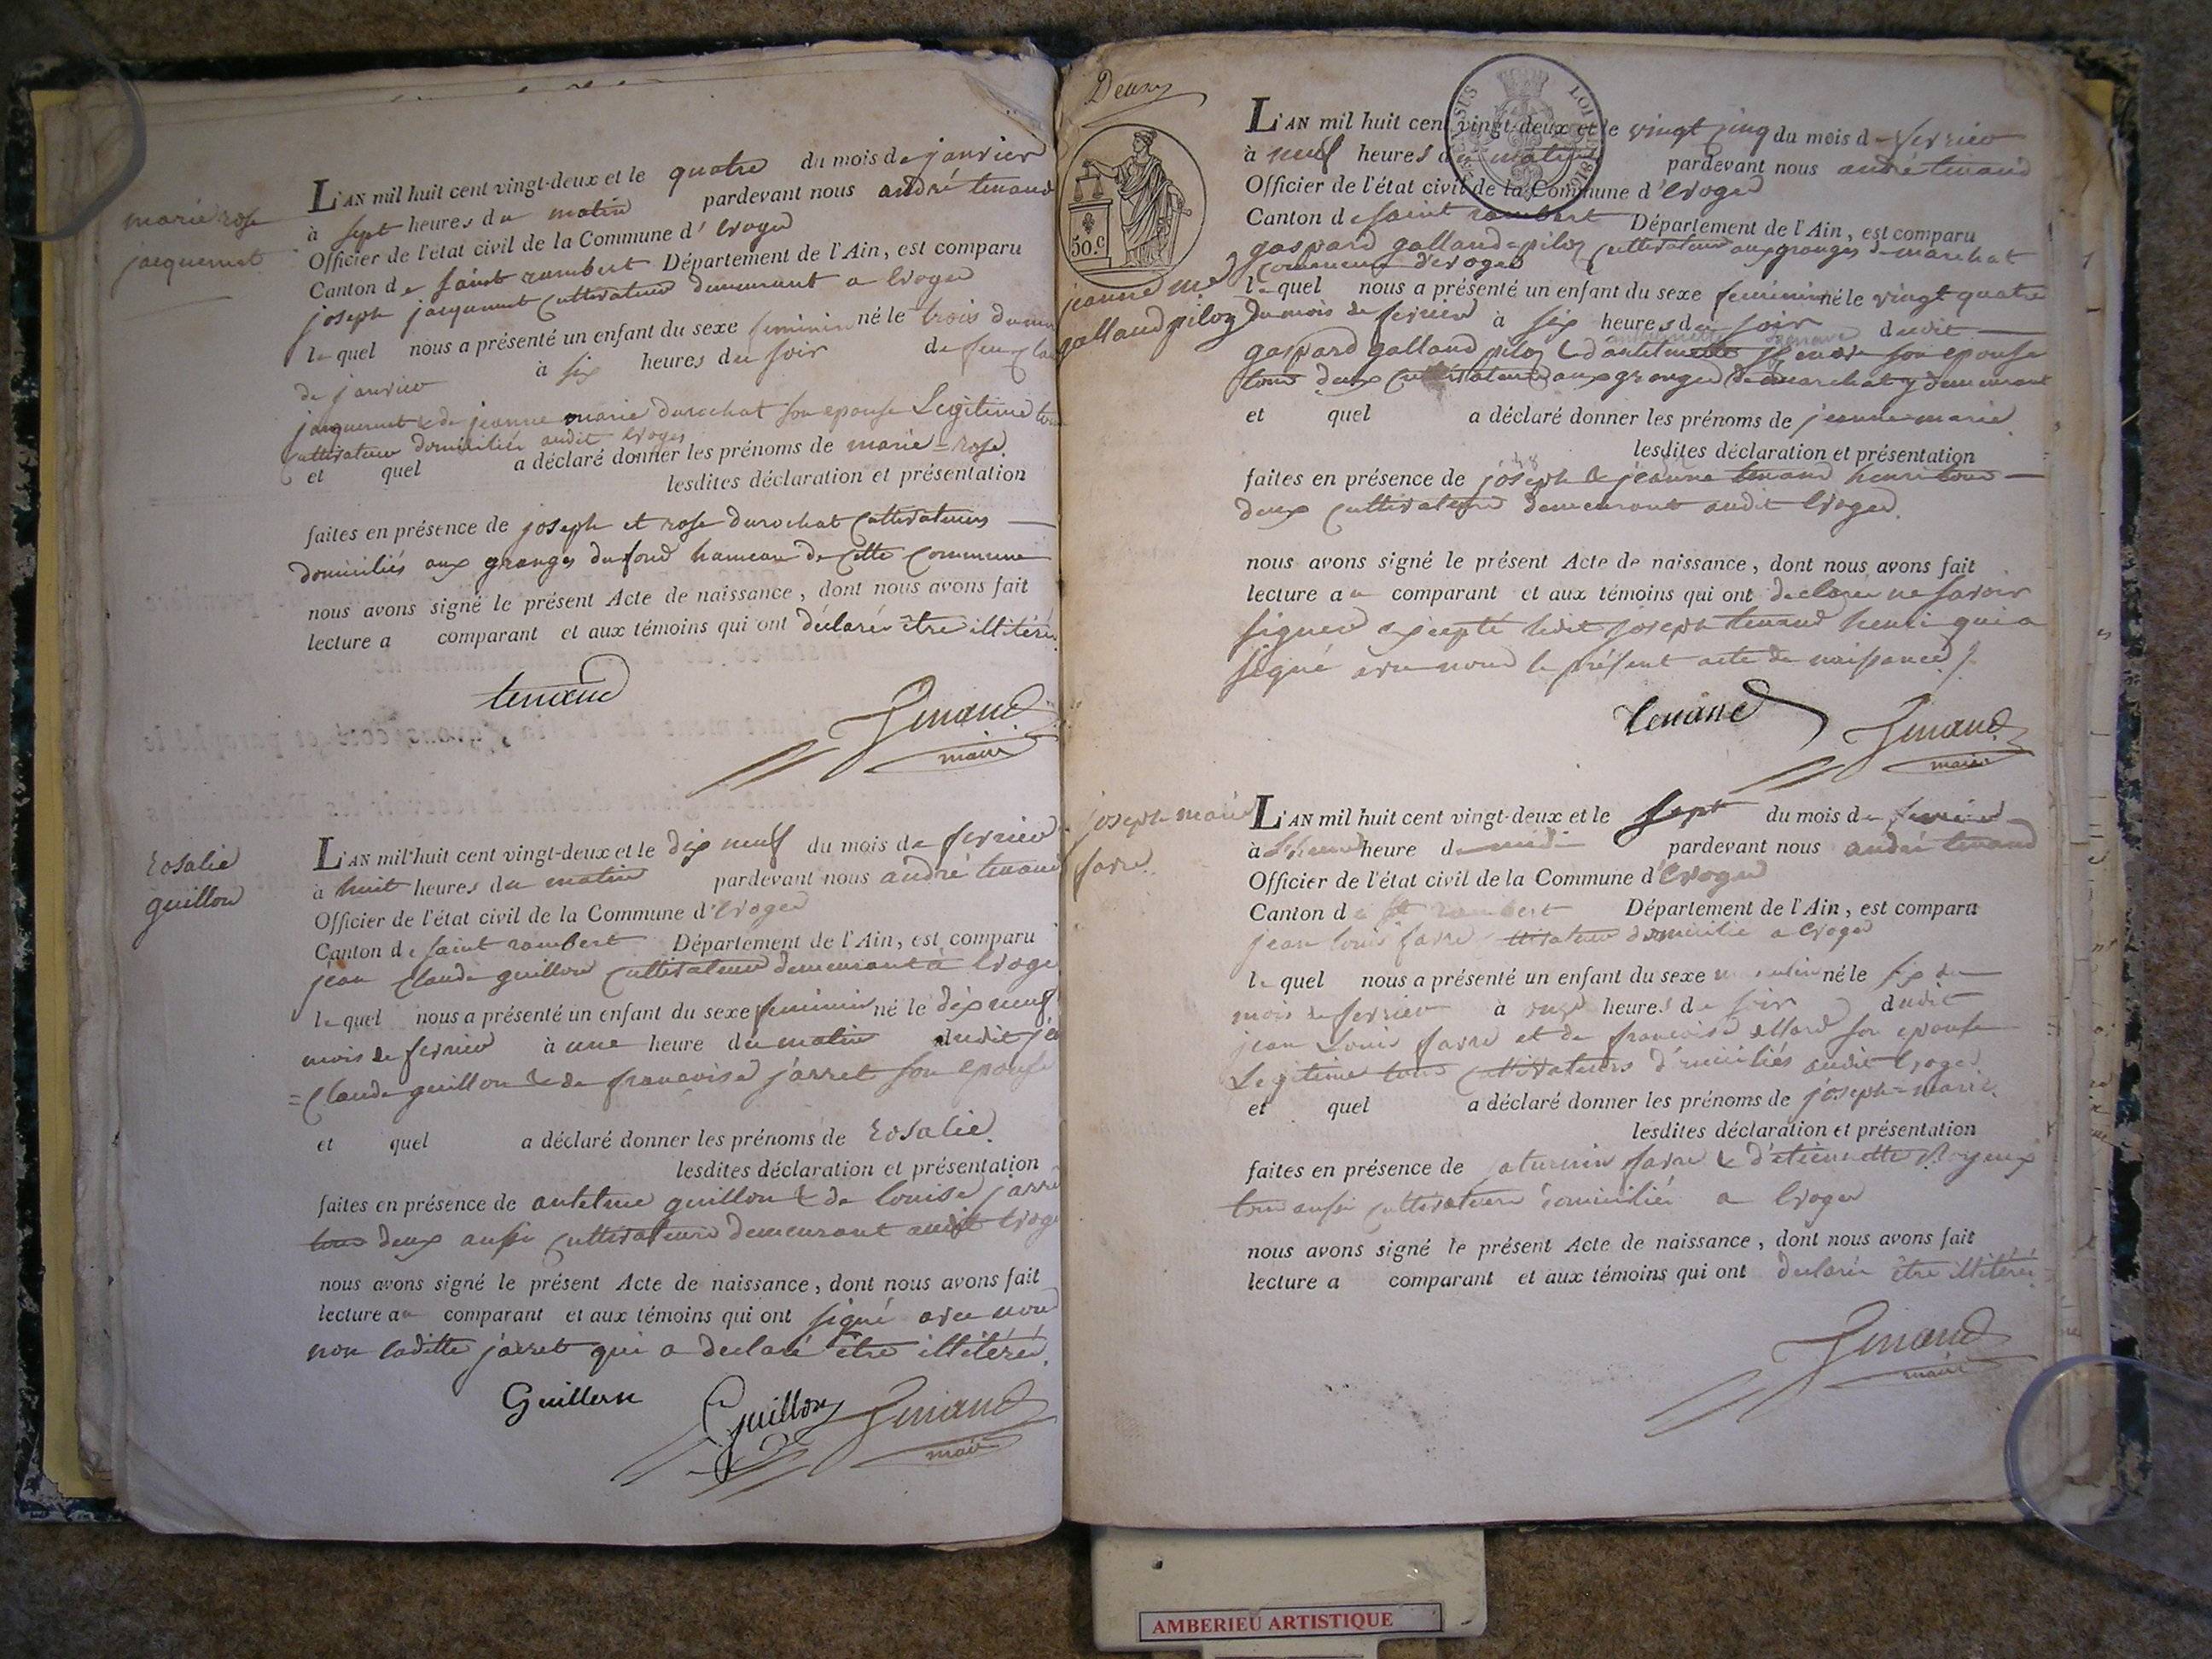 marie rose
jacquemet
L'AN mil huit cent vingt-deux et le quatre du mois de janvier
à sept heures du matin pardevant nous andré tenand
Officier de l'état civil de la Commune d'Evoges
Canton de saint rambert Département de l'Ain, est comparu
joseph jacquemet cultivateur demeurant a Evoges
lequel nous a présenté un enfant du sexe feminin né le trois du
de janvier à six heures du soir de
jacquemet & de jeanne marie durochat son epouse Legitime
cultivateur domiciliés audit Evoges
et quel a déclaré donner les prénoms de marie=rose.
lesdites déclaration et présentation
faites en présence de joseph et rose durochat Cultivateurs
domiciliés aux granges du fond hameau de Cette Commune
nous avons signé le présent Acte de naissance, dont nous avons fait
lecture a comparant et aux témoins qui ont déclaré être illitérés
tenand
Tenand
maire
Rosalie
guillon
L'AN mil huit cent vingt-deux et le dix neuf du mois de fevrier
à huit heures du matin pardevant nous andré tenand
Officier de l'état civil de la Commune d'Evoges
Canton de saint rambert Département de l'Ain, est comparu
jean Claude guillon Cultivateur demeurant à Evoges
lequel nous a présenté un enfant du sexe feminin né le dix neuf
mois de fevrier à une heure du matin dudit
=Claude guillon & de francoise jarret son epouse
et quel a déclaré donner les prénoms de Rosalie.
lesdites déclaration et présentation
faites en présence de antelme guillon & de louise jarret
tous deux aussi cultivateurs demeurant audit Evoges
nous avons signé le présent Acte de naissance, dont nous avons fait
lecture au comparant et aux témoins qui ont signé avec nous
non laditte jarret qui a declaré être illitérée.
Guillon Guillon Tenand
maire
Deux
50.c
LOI
jeanne me
galland piloz
L'AN mil huit cent vingt-deux et le vingt cinq du mois de fevrier
à neuf heures du matin pardevant nous andré tenand
Officier de l'état civil de la Commune d'Evoges
Canton de saint rambert Département de l'Ain, est comparu
gaspard galland=piloz cultivateur aux granges de marchat
Commune d'Evoges
lequel nous a présenté un enfant du sexe feminin né le vingt quatre
du mois de fevrier à six heures du soir dudit
gaspard galland piloz & son epouse
tous deux Cultivateurs aux granges de marchat y demeurant
et quel a déclaré donner les prénoms de jeanne=marie
lesdites déclaration et présentation
faites en présence de joseph & jeanne tenand henri tous
deux cultivateurs demeurant audit Evoges.
nous avons signé le présent Acte de naissance, dont nous avons fait
lecture au comparant et aux témoins qui ont declaré ne savoir
signer excepté ledit joseph tenand henri qui a
signé avec nous le présent acte de naissance
tenand
Tenand
maire
joseph marie
favre.
L'AN mil huit cent vingt-deux et le sept du mois de fevrier
à heure de midi pardevant nous andré tenand
Officier de l'état civil de la Commune d'Evoges
Canton de st rambert Département de l'Ain, est comparu
jean louis favre cultivateur domicilié a Evoges
lequel nous a présenté un enfant du sexe masculin né le six du
mois de fevrier à onze heures du soir dudit
jean Louis favre et de francoise son epouse
Legitime tous Cultivateurs domiciliés audit Evoges
et quel a déclaré donner les prénoms de joseph=marie.
lesdites déclaration et présentation
faites en présence de saturnin favre & d'etiennette
tous aussi cultivateurs domiciliés a Evoges
nous avons signé le présent Acte de naissance, dont nous avons fait
lecture a comparant et aux témoins qui ont declaré être illitérés
Tenand
maire
AMBERIEU ARTISTIQUE